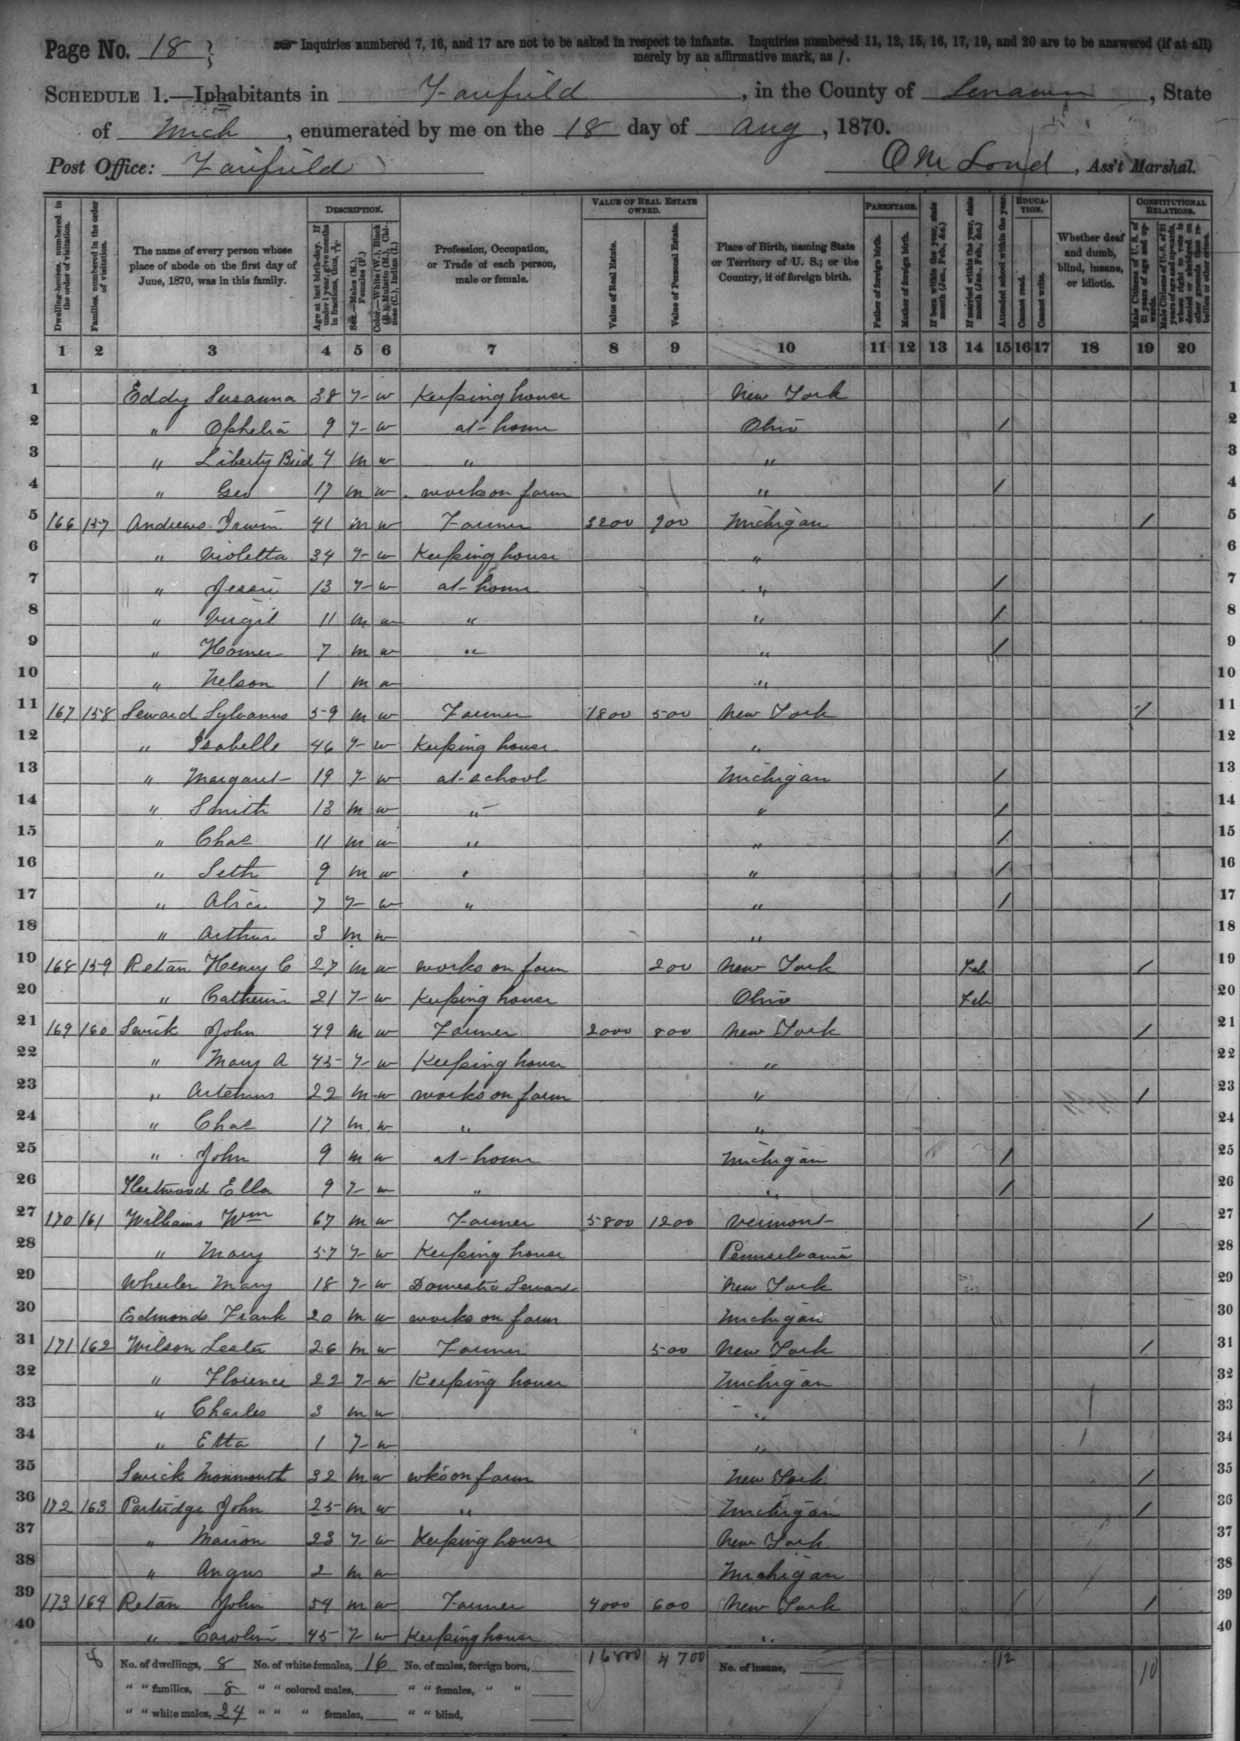 Page No. 18
Inquiries numbered 7, 16, and 17 are not to be asked in respect to infants. Inquiries numbered 11, 12, 15, 16, 17, 19, and 20 are to be answered (if at all) merely by an affirmative mark, as /.
SCHEDULE 1.—Inhabitants in Fairfield, in the County of Lenawee, State
of Mich, enumerated by me on the 18 day of Aug, 1870.
Post Office: Fairfield O M Loud, Ass't Marshal.
DESCRIPTION. VALUE OF REAL ESTATE OWNED. PARENTAGE. EDUCATION. CONSTITUTIONAL RELATIONS.
Dwelling-houses, numbered in the order of visitation.
Families, numbered in the order of visitation.
The name of every person whose place of abode on the first day of June, 1870, was in this family.
Age at last birth-day. If under 1 year, give months in fractions, thus,
Sex.—Males (M.), Females (F.)
Color.—White (W.), Black (B.), Mulatto (M.), Chinese (C.), Indian (I.)
Profession, Occupation, or Trade of each person, male or female.
Value of Real Estate.
Value of Personal Estate.
Place of Birth, naming State or Territory of U. S.; or the Country, if of foreign birth.
Father of foreign birth.
Mother of foreign birth.
If born within the year, state month (Jan., Feb., &c.)
If married within the year, state month (Jan., Feb., &c.)
Attended school within the year.
Cannot read.
Cannot write.
Whether deaf and dumb, blind, insane, or idiotic.
Male Citizens of U. S. of 21 years of age and upwards.
Male Citizens of U. S. of 21 years of age and upwards, whose right to vote is denied or abridged on other grounds than rebellion or other crime.
1 2 3 4 5 6 7 8 9 10 11 12 13 14 15 16 17 18 19 20
1 Eddy Susanna 38 F W Keeping house New York 1
2 " Ophelia 9 F W at home Ohio / 2
3 " Liberty Bird 4 M W " " 3
4 " Geo 17 M W works on farm " / 4
5 166 157 Andrews Irwin 41 M W Farmer 3200 900 Michigan / 5
6 " Violetta 34 F W Keeping house " 6
7 " Jessie 13 F W at home " / 7
8 " Virgil 11 M W " " / 8
9 " Homer 7 M W " " / 9
10 " Nelson 1 M W " 10
11 167 158 Seward Sylvanus 59 M W Farmer 1800 500 New York / 11
12 " Isabelle 46 F W Keeping house " 12
13 " Margaret 19 F W at school Michigan / 13
14 " Smith 13 M W " " / 14
15 " Chas 11 M W " " / 15
16 " Seth 9 M W " " / 16
17 " Alice 7 F W " " / 17
18 " Arthur 3 M W " 18
19 168 159 Retan Henry C 27 M W works on farm 200 New York Feb / 19
20 " Catherin 21 F W Keeping house Ohio Feb 20
21 169 160 Swick John 49 M W Farmer 2000 800 New York / 21
22 " Mary A 45 F W Keeping house " 22
23 " Artemus 22 M W works on farm " / 23
24 " Chas 17 M W " " 24
25 " John 9 M W at home Michigan / 25
26 Fleetwood Ella 9 F W " " / 26
27 170 161 Williams Wm 67 M W Farmer 5800 1200 Vermont / 27
28 " Mary 57 F W Keeping house Pennselvania 28
29 Wheeler Mary 18 F W Domestic Servant New York 29
30 Edmonds Frank 20 M W works on farm Michigan 30
31 171 162 Wilson Lester 26 M W Farmer 500 New York / 31
32 " Florence 22 F W Keeping house Michigan 32
33 " Charles 3 M W " 33
34 " Etta 1 F W " 34
35 Swick Monmouth 32 M W wks on farm New York / 35
36 172 163 Partridge John 25 M W " Michigan / 36
37 " Marion 23 F W Keeping house New York 37
38 " Angus 2 M W Michigan 38
39 173 164 Retan John 54 M W Farmer 4000 600 New York / 39
40 " Carolin 45 F W Keeping house " 40
8 No. of dwellings, 8 No. of white females, 16 No. of males, foreign born, 16800 4700 No. of insane, 12 10
" " families, 8 " " colored males, " " females, " "
" " white males, 24 " " " females, " " blind,